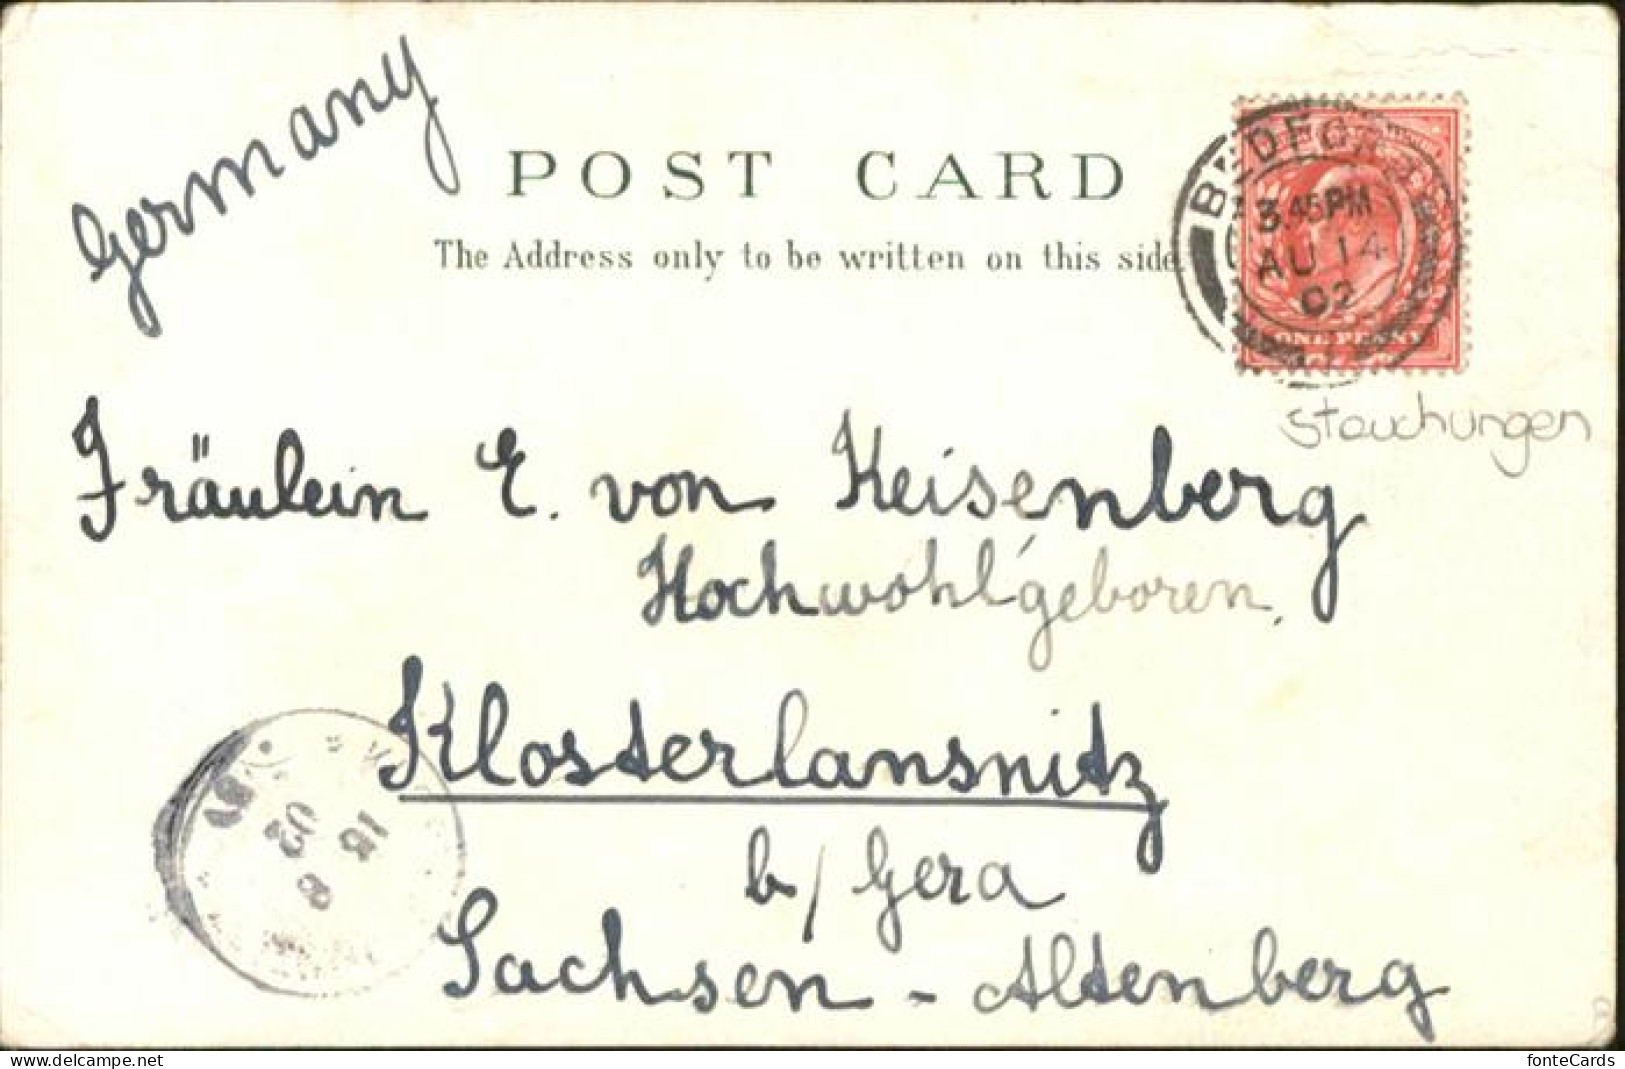 Germany
POST CARD
The Address only to be written on this side
BEDFORD
3.45 PM
AU 14
02
ONE PENNY
Stauchungen
Fräulein E. von Keisenberg
Hochwohlgeboren,
Klosterlausnitz
b/ Gera
Sachsen-Altenberg
8
02
fonteCards